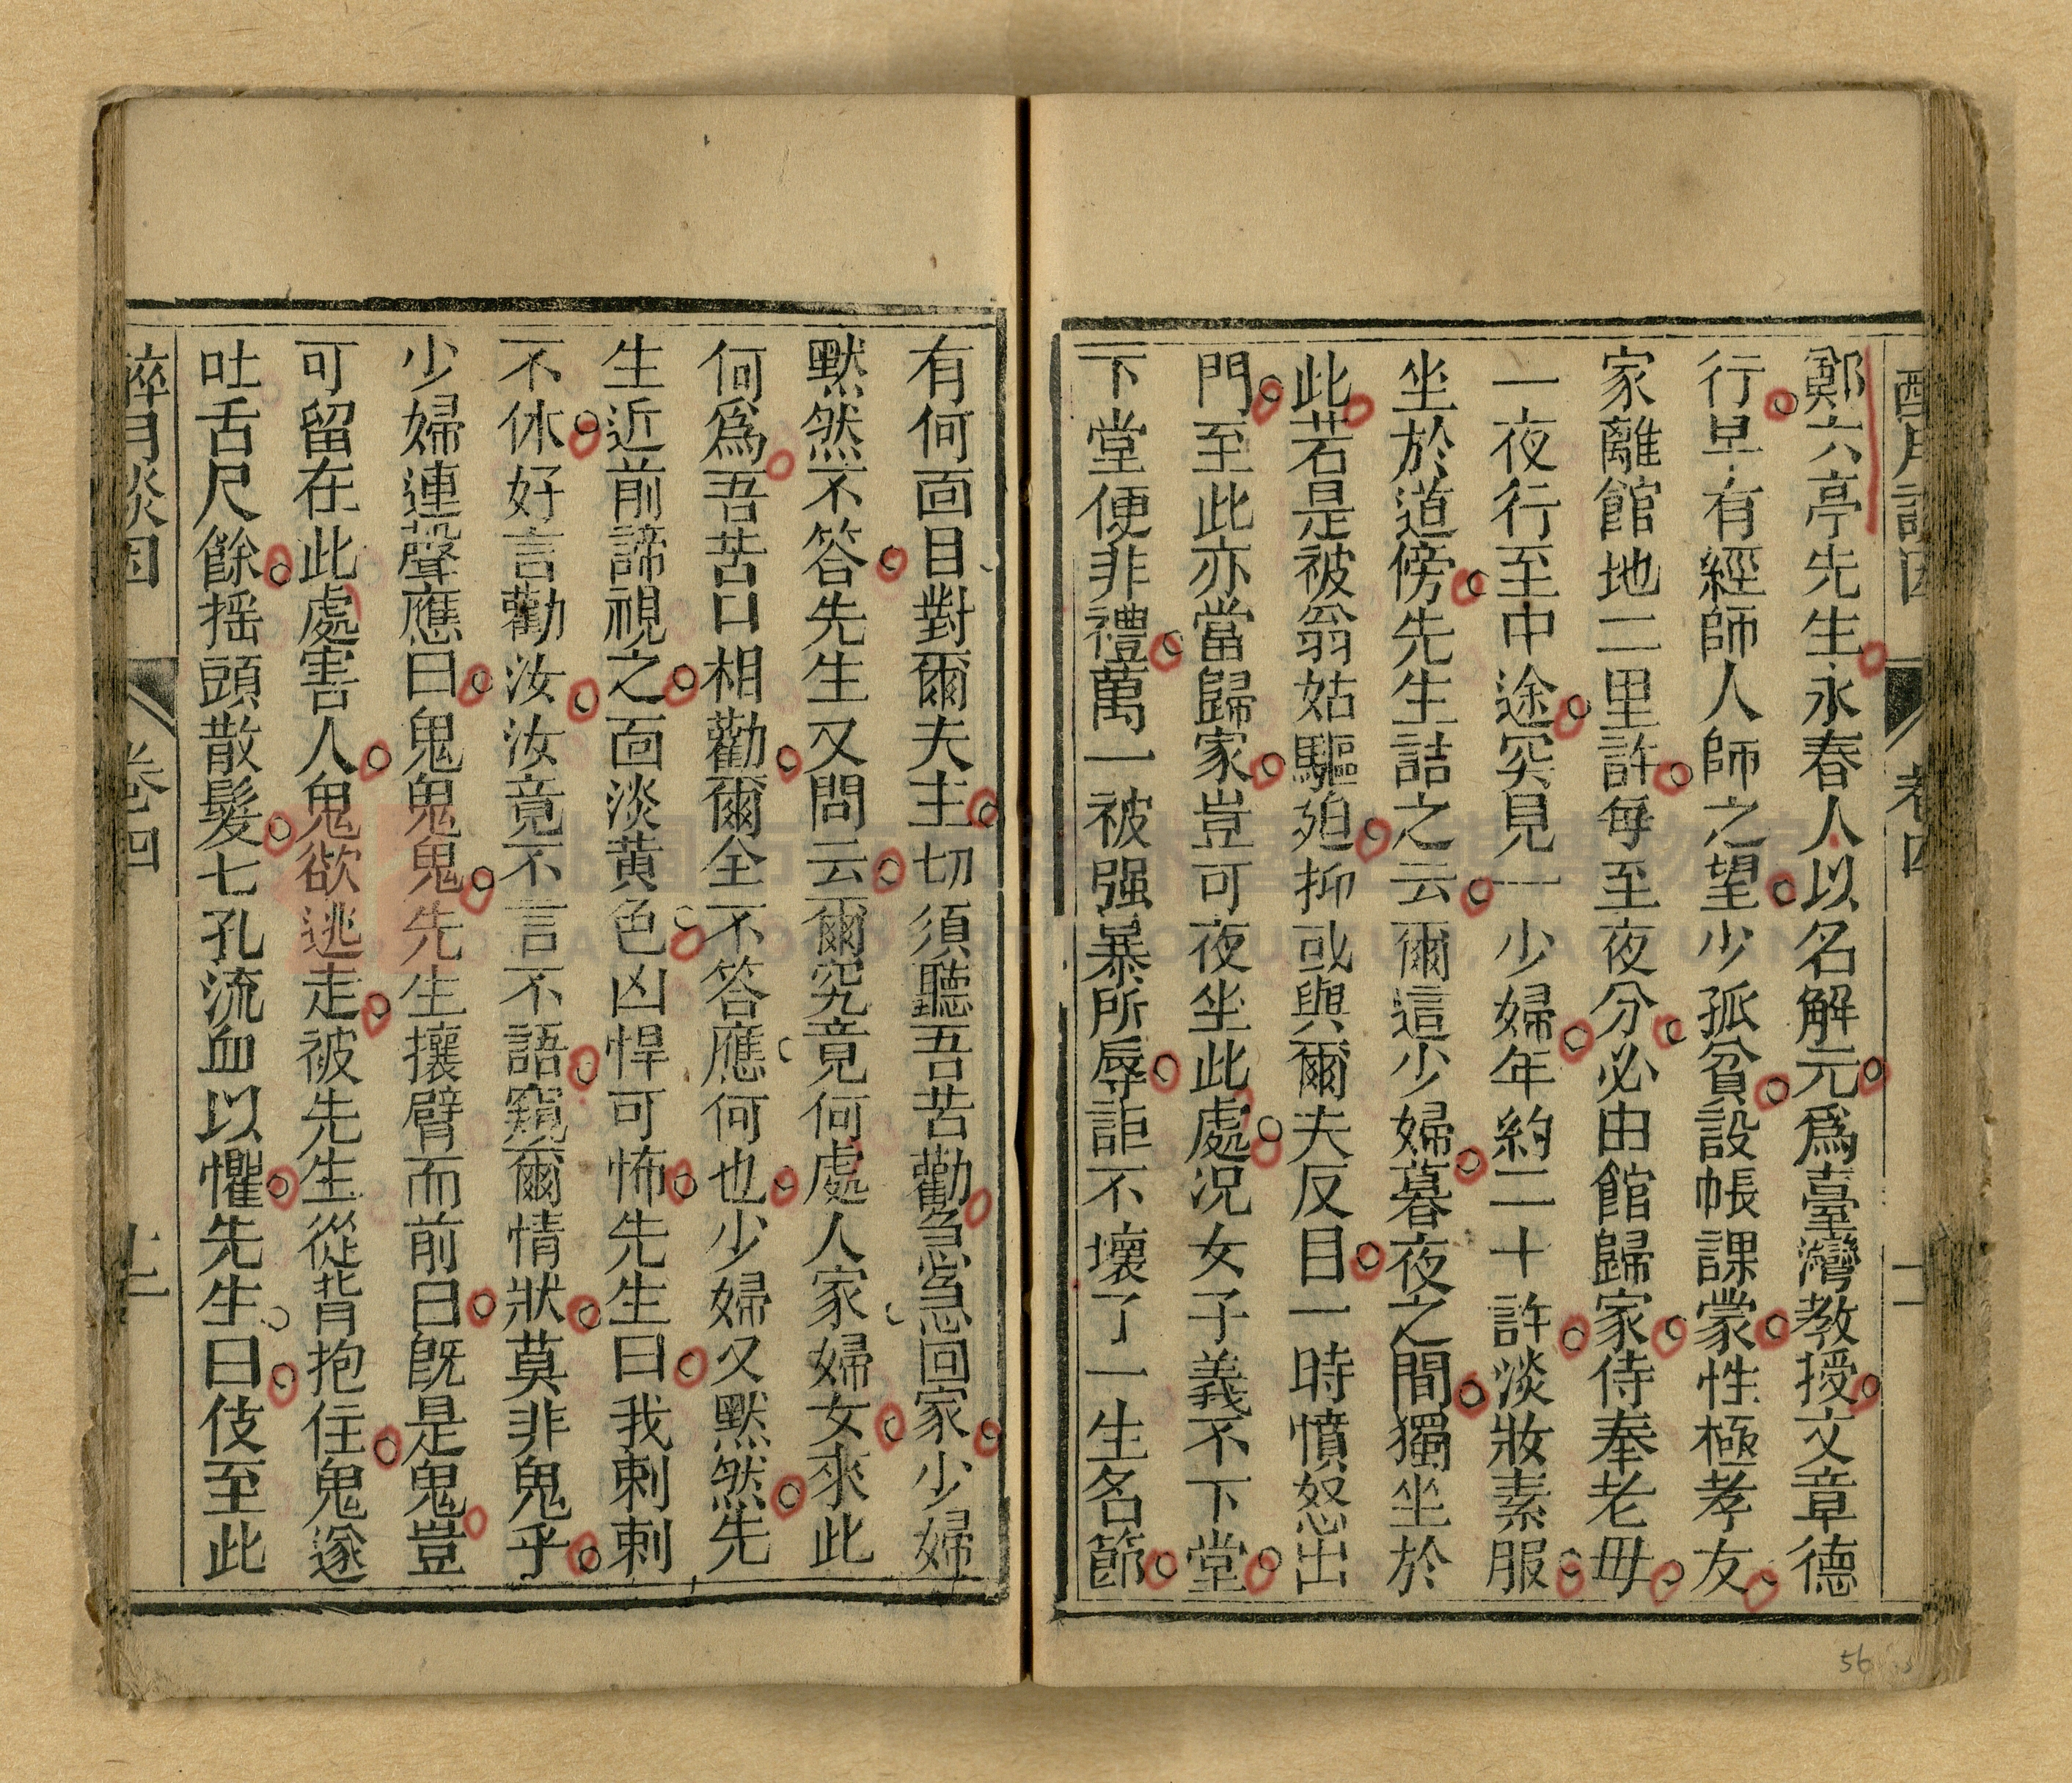 鄭六亭先生永春人以名解元爲臺灣教授文章德
行早有經師人師之望少孤貧設帳課蒙性極孝友
家離館地二里許每至夜分必由館歸家侍奉老母
一夜行至中途突見一少婦年約二十許淡妝素服
坐於道傍先生詰之云爾這少婦暮夜之間獨坐於
此若是被翁姑驅廹抑或與爾夫反目一時憤怒出
門至此亦當歸家豈可夜坐此處況女子義不下堂
下堂便非禮萬一被强暴所辱詎不壞了一生名節
有何面目對爾夫主切須聽吾苦勸急急回家少婦
默然不答先生又問云爾究竟何處人家婦女來此
何爲吾苦口相勸爾全不答應何也少婦又默然先
生近前諦視之面淡黄色凶悍可怖先生曰我剌剌
不休好言勸汝汝竟不言不語窺爾情狀莫非鬼乎
少婦連聲應曰鬼鬼鬼先生攘臂而前曰旣是鬼豈
可留在此處害人鬼欲逃走被先生從背抱住鬼遂
吐舌尺餘摇頭散髮七孔流血以懼先生曰伎至此
卷四
56